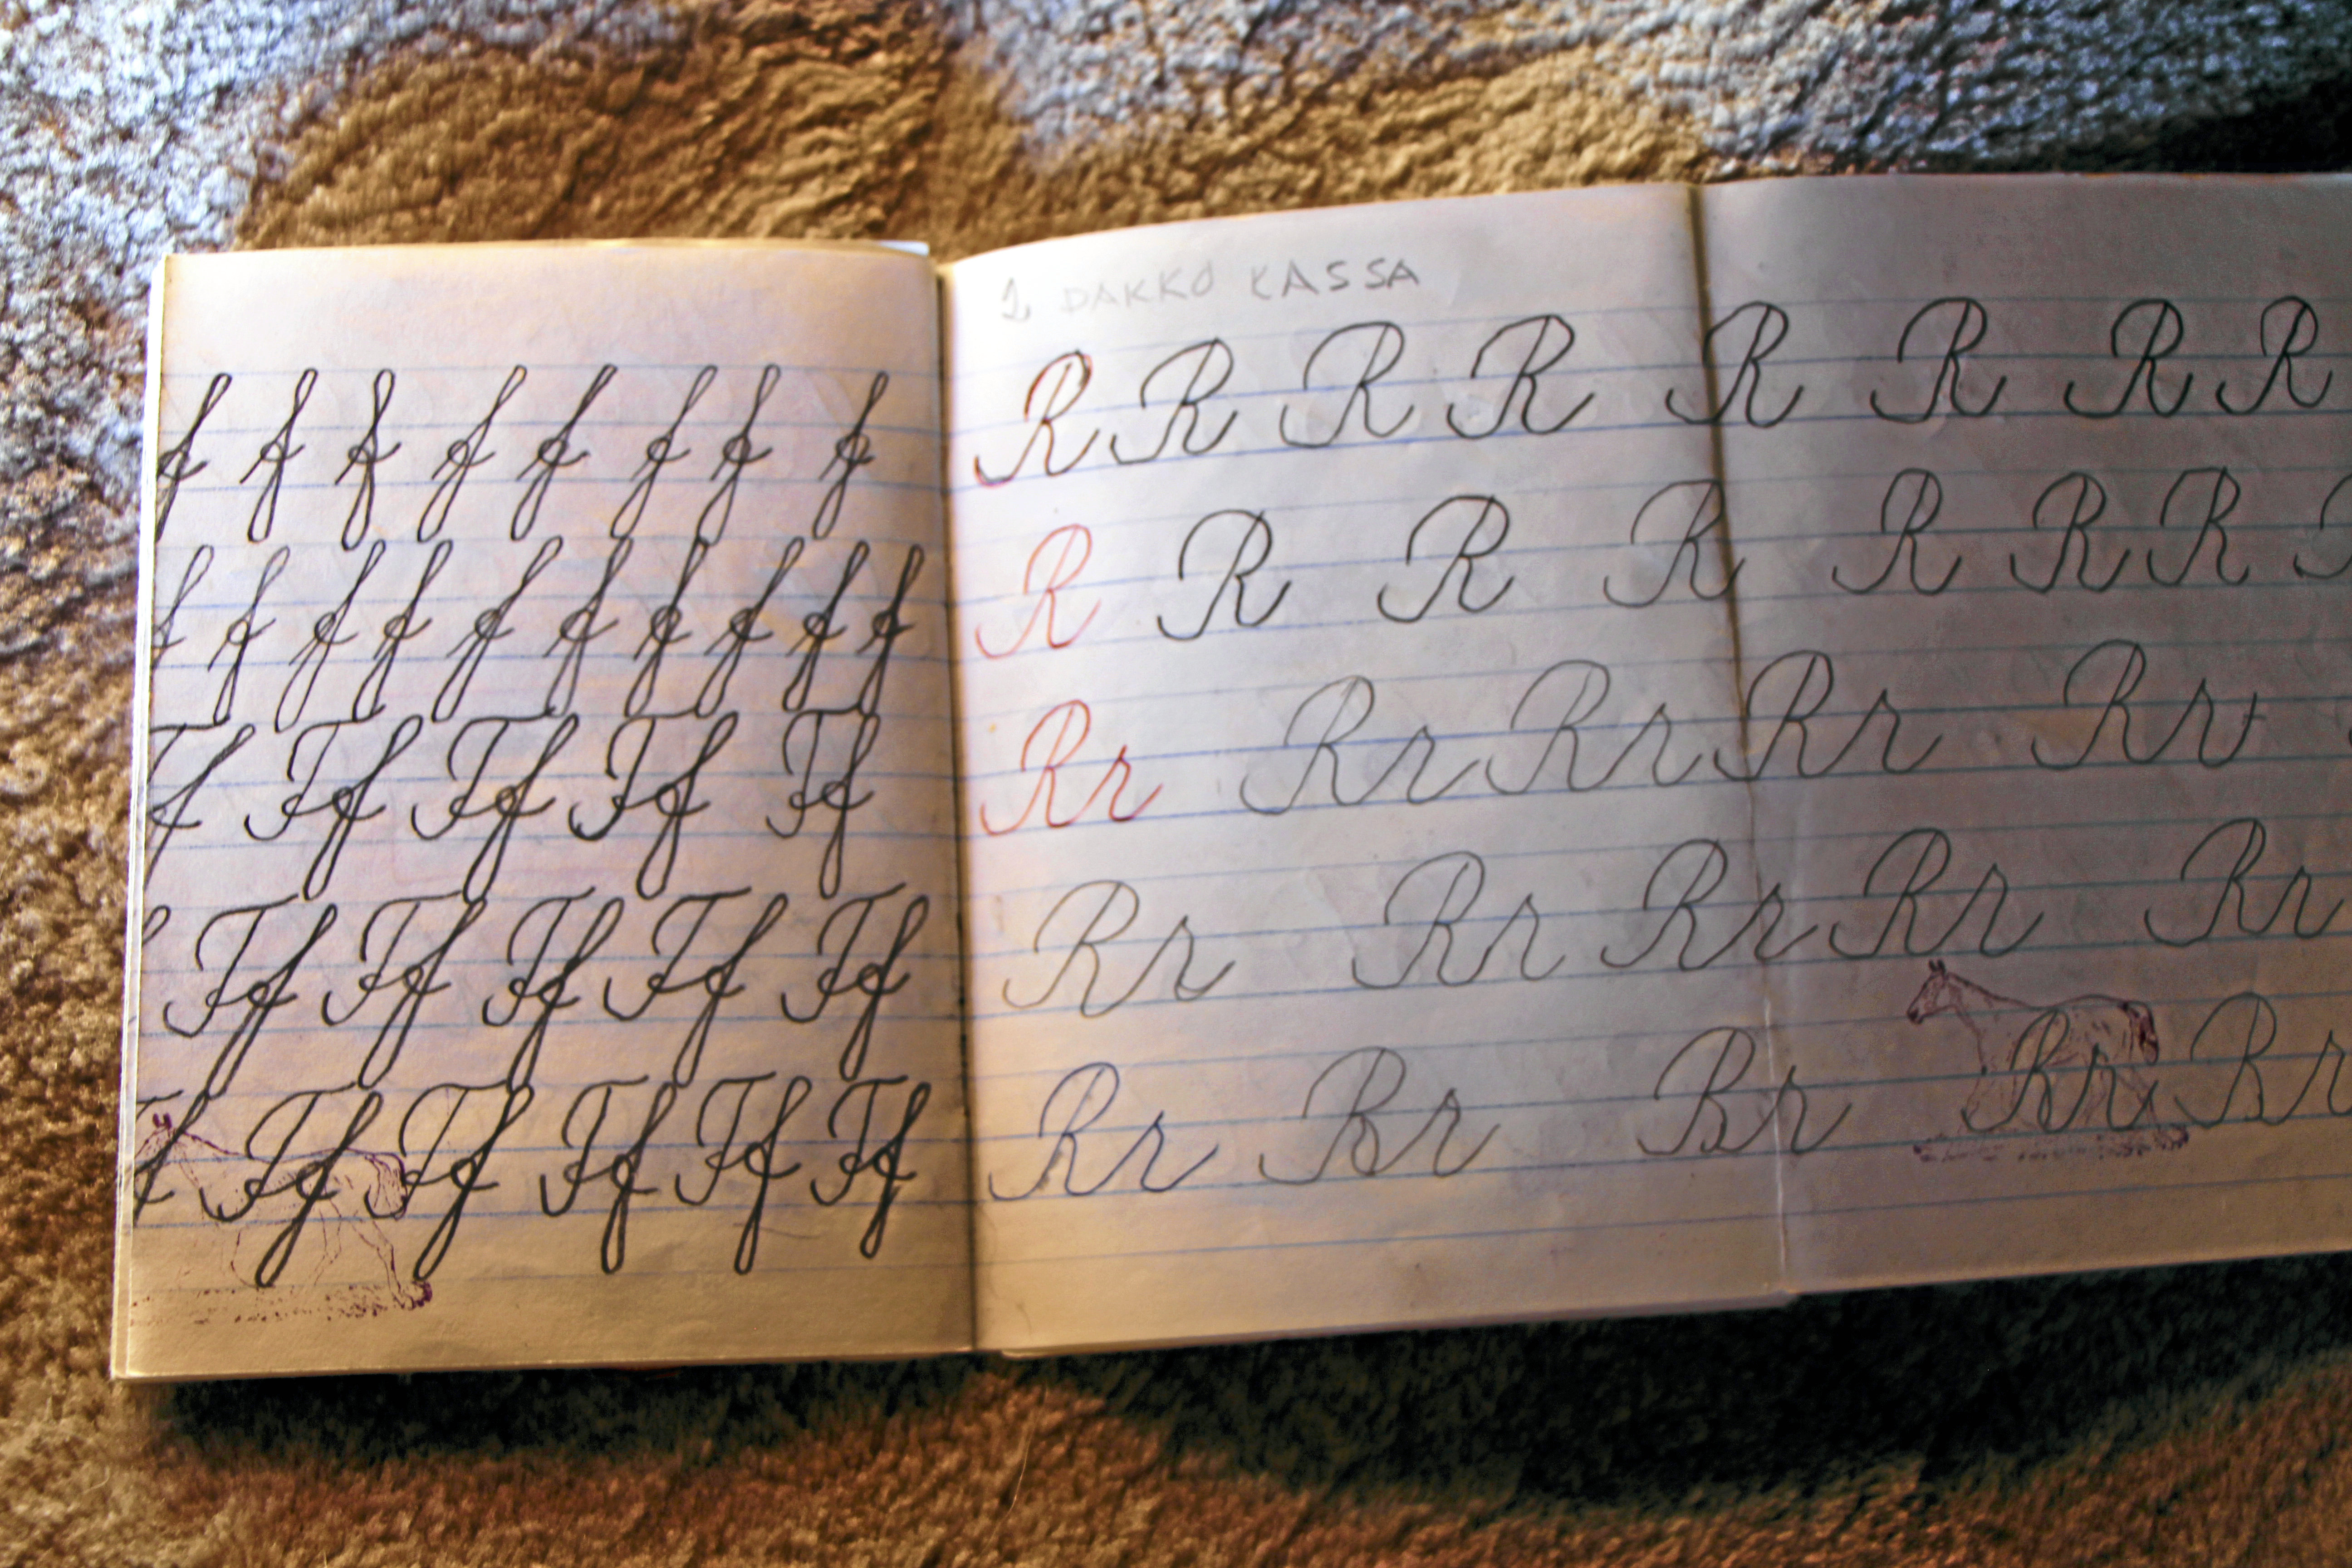 f f f f f f f f
f f f f f f f f f f
Ff Ff Ff Ff Ff
f Ff Ff Ff Ff Ff
Ff Ff Ff Ff Ff Ff
1 DAKKO KASSA
R R R R R R R R
R R R R R R R
Rr Rr Rr Rr Rr
Rr Rr Rr Rr Rr
Rr Rr Rr Rr Rr